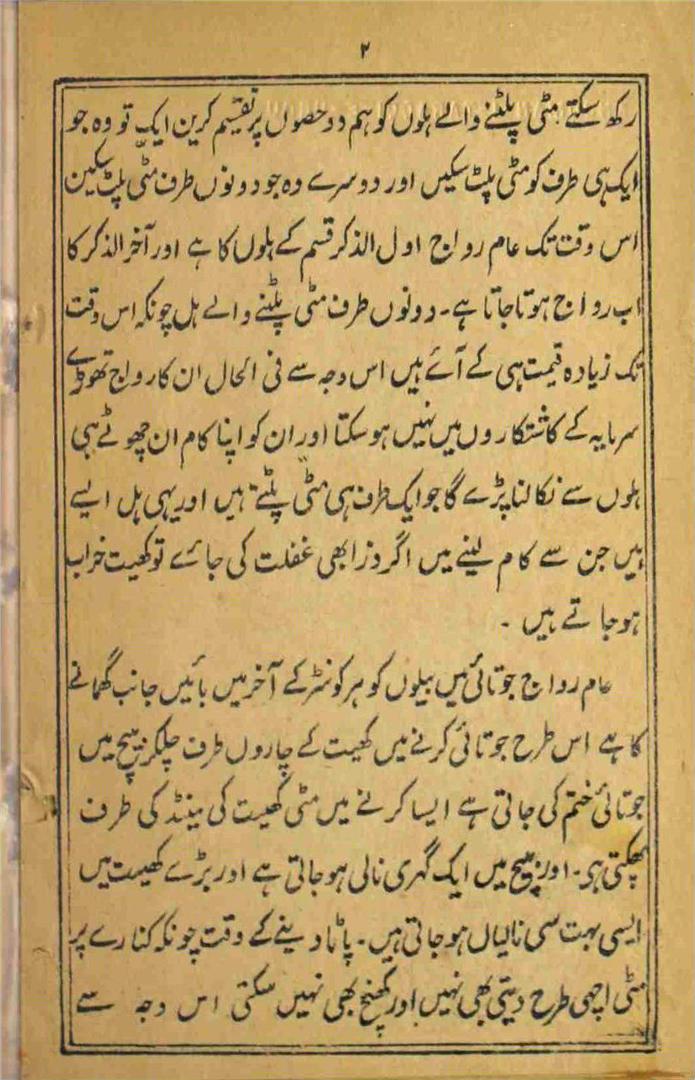 ۲
رکھ سکتے مٹی پلٹنے والے ہلوں کو ہم دو حصوں پر تقسیم کرین ایک تو وہ جو
ایک ہی طرف کو مٹی پلٹ سکیں اور دوسرے وہ جو دونوں طرف مٹی پلٹ سکین
اس وقت تک عام رواج اول الذکر قسم کے ہلوں کا ہے اور آخر الذکر کا
اب رواج ہوتا جاتا ہے۔ دونوں طرف مٹی پلٹنے والے ہل چونکہ اس وقت
تک زیادہ قیمت ہی کے آئے ہیں اس وجہ سے فی الحال ان کا رواج تھوڑے
سرمایہ کے کاشتکاروں میں نہیں ہو سکتا اور ان کو اپنا کام ان چھوٹے ہی
ہلوں سے نکالنا پڑے گا جو ایک طرف ہی مٹی پلٹتے ہیں اور یہی ہل ایسے
ہیں جن سے کام لینے میں اگر ذرا بھی غفلت کی جائے تو کھیت خراب
ہو جاتے ہیں ۔
عام رواج جوتائی میں بیلوں کو ہر کونٹر کے آخر میں بائیں جانب گھمانے
کا ہے اس طرح جوتائی کرنے میں کھیت کے چاروں طرف چلکر بیچ میں
جوتائی ختم کی جاتی ہے ایسا کرنے میں مٹی کھیت کی مینڈ کی طرف
پھکتی ہی۔ اور بیچ میں ایک گہری نالی ہو جاتی ہے اور بڑے کھیت میں
ایسی بہت سی نالیاں ہو جاتی ہیں۔ پاٹا دینے کے وقت چونکہ کنارے پر
مٹی اچھی طرح دبتی بھی نہیں اور کھنچ بھی نہیں سکتی اس وجہ سے